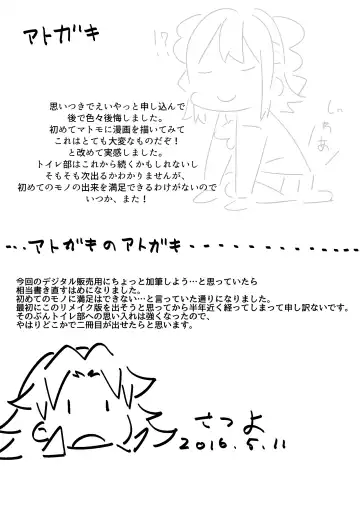 アトガキ
!?
思いつきでえいやっと申し込んで
後で色々後悔しました。
初めてマトモに漫画を描いてみて
これはとても大変なものだぞ!
と改めて実感しました。
トイレ部はこれから続くかもしれないし
そもそも次出るかわかりませんが、
初めてのモノの出来を満足できるわけがないので
いつか、また!
...アトガキのアトガキ............
今回のデジタル販売用にちょっと加筆しよう…と思っていたら
相当書き直すはめになりました。
初めてのモノに満足はできない…と言っていた通りになりました。
最初にこのリメイク版を出そうと思ってから半年近く経ってしまって申し訳ないです。
そのぶんトイレ部への思い入れは強くなったので、
やはりどこかで二冊目が出せたらと思います。
さつよ
2016.5.11